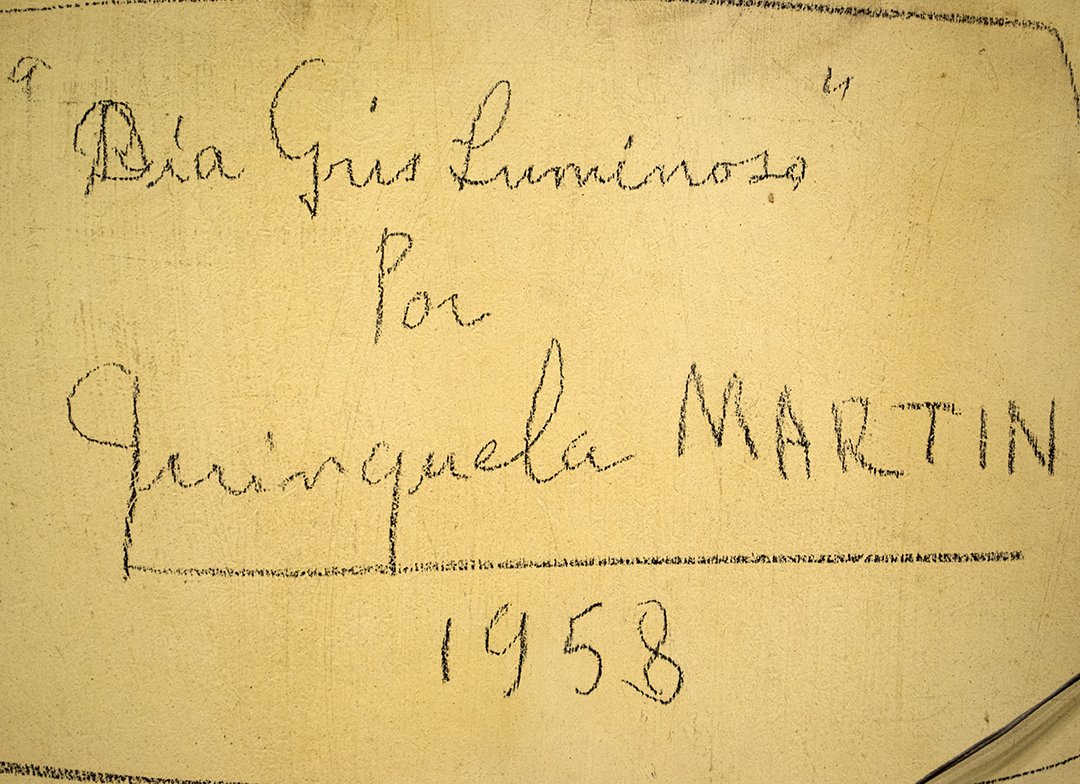 "Día Gris Luminoso"
Por
Quinquela MARTIN
1958